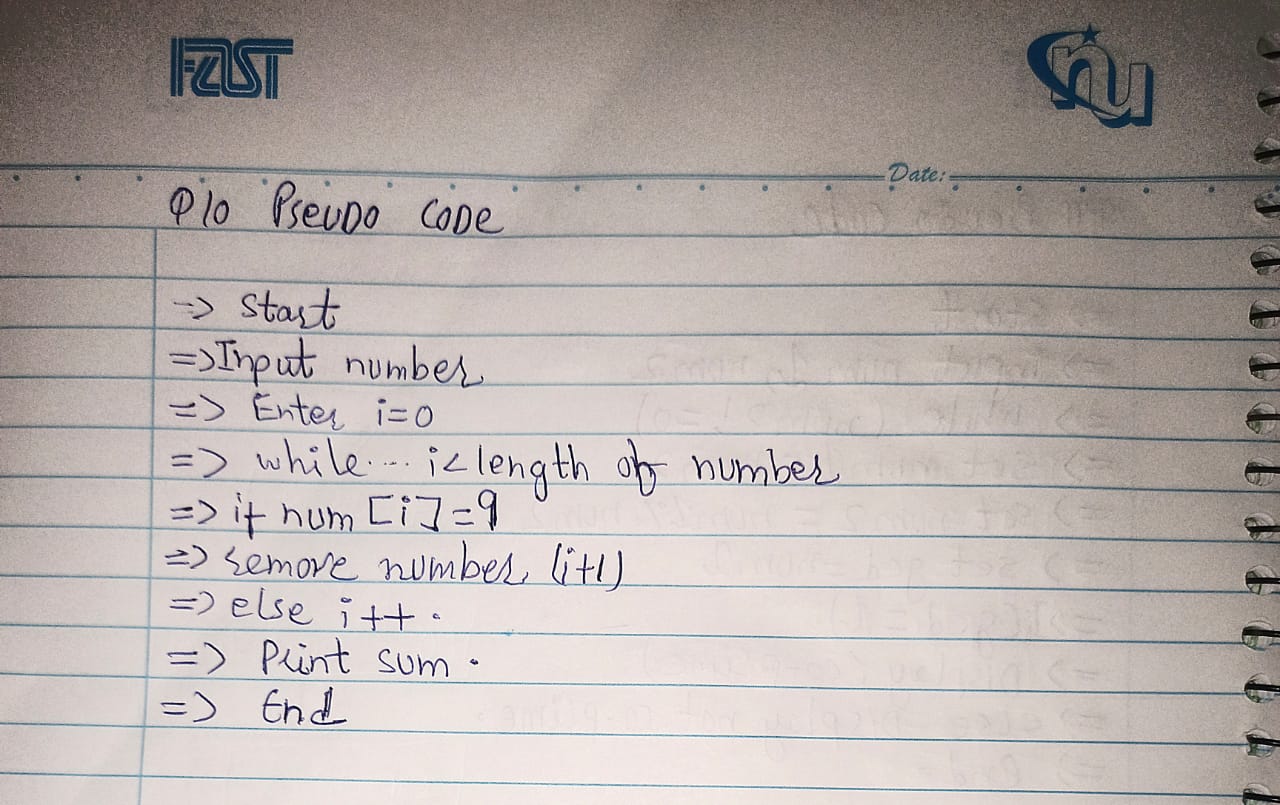 FAST
nu
Date:
Q10 Pseudo Code
=> Start
=> Input number
=> Enter i=0
=> while... i< length of number
=> if num [i] = 9
=> remove number (i+1)
=> else i++.
=> Print sum.
=> End